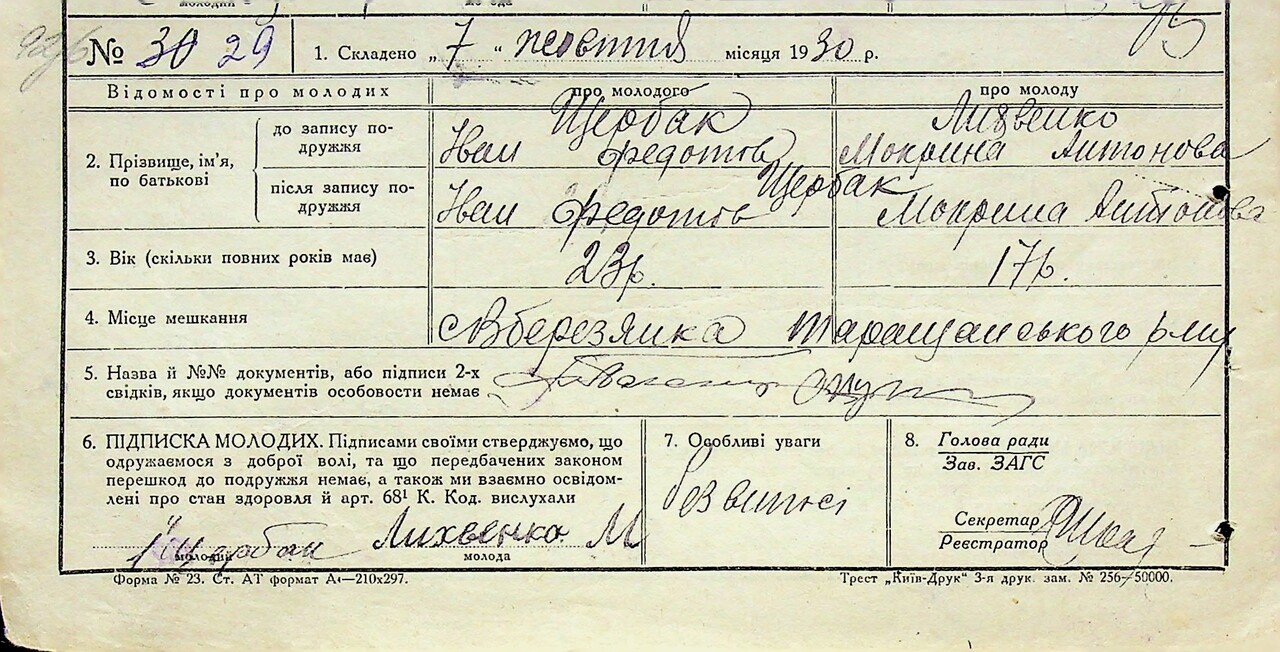 № 30 29
1. Складено „7“ жовтня місяця 1930 р.
Відомості про молодих
про молодого
про молоду
2. Прізвище, ім'я, по батькові
до запису подружжя
Щербак
Иван Федотов
Мокрина Антонова
після запису подружжя
Иван Федотов
Щербак
Мокрина Антонова
3. Вік (скільки повних років має)
23р.
17р.
4. Місце мешкання
Таращанського
5. Назва й №№ документів, або підписи 2-х
свідків, якщо документів особовости немає
6. ПІДПИСКА МОЛОДИХ. Підписами своїми стверджуємо, що
одружаємося з доброї волі, та що передбачених законом
перешкод до подружжя немає, а також ми взаємно освідом-
лені про стан здоровля й арт. 68¹ К. Код. вислухали
Щербак
Лихвенко М
молодий
молода
7. Особливі уваги
8. Голова ради
Зав. ЗАГС
Секретар
Реєстратор
Форма № 23. Ст. АТ формат А₄—210x297.
Трест „Київ-Друк“ 3-я друк. зам. № 256—50000.